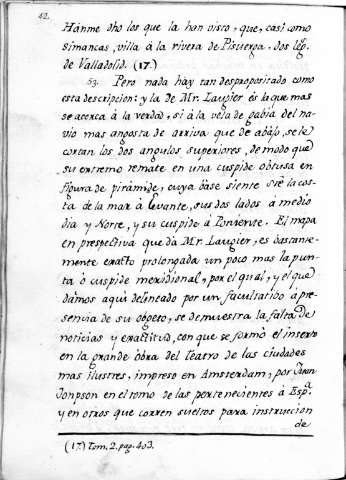 42.
Hánme dho los que la han visto, que, casi como
Simancas, villa à la rivera de Pisuerga, dos leg.s
de Valladolid. (17.)
53. Pero nada hay tan desproposítado como
esta descripcion: y la de Mr. Laugier es la que mas
se acerca à la verdad, si à la vela de gabia del na-
vio mas angosta de arriva que de abájo, se le
cortan los dos angulos superiores, de modo que
su extremo remate en una cuspide obtusa en
figura de pirámide, cuya báse siente sre la cos-
ta de la mar à Levante, sus dos lados à medio
dia y Norte, y su cuspide à Poniente. El mapa
en prespectiva que dà Mr. Laugier, es bastante-
mente exacto prolongada un poco mas la pun-
ta ò cuspide meridional, por el qual, y el que
dámos aqui delineado por un facultatibo à pre-
sencia de su obgeto, se demuestra la falta de
noticias y exactitud, con que se formò el inserto
en la grande obra del Teatro de las ciudades
mas ilustres, impreso en Amsterdam, por Juan
Jonpson en el tomo de las pertenecientes à Esp.a
y en otros que corren sueltos para instruccion
de
(17.) Tom. 2. pag. 403.